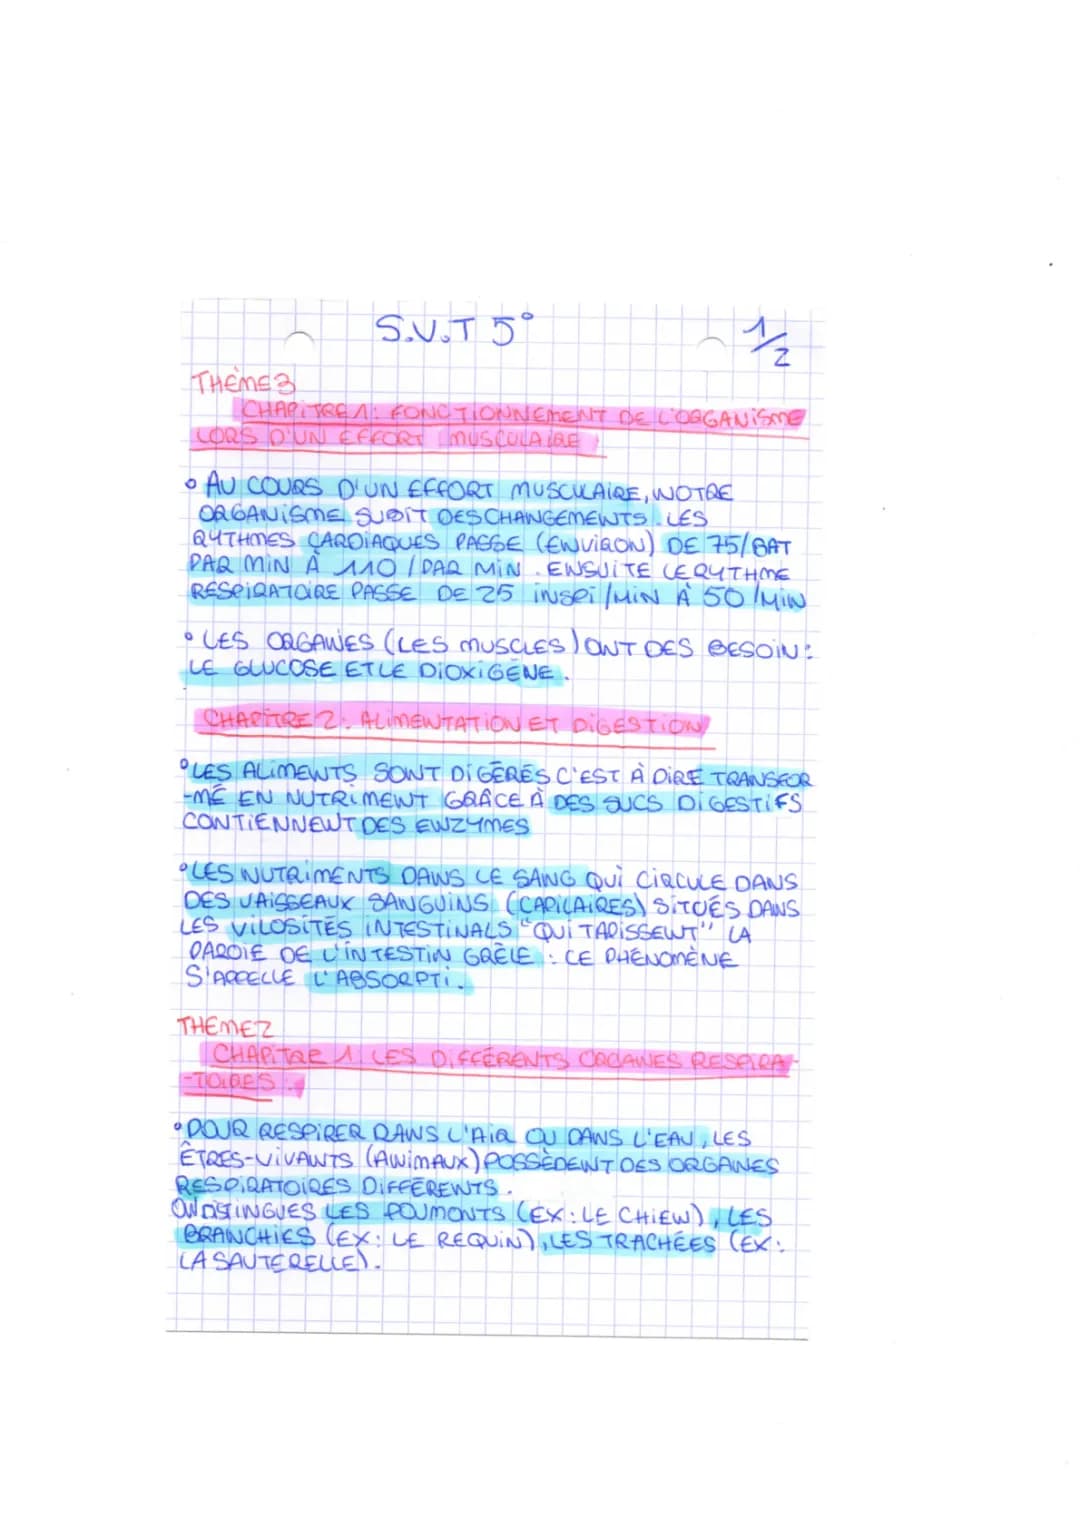 S.V.T 5°
1/2
THÈME 3
CHAPITRE 1: FONCTIONNEMENT DE L'ORGANISME
LORS D'UN EFFORT MUSCULAIRE
• AU COURS D'UN EFFORT MUSCULAIRE, NOTRE
ORGANISME SUBIT DES CHANGEMENTS. LES
RYTHMES CARDIAQUES PASSE (ENVIRON) DE 75/BAT
PAR MIN À 110 / PAR MIN. ENSUITE LE RYTHME
RESPIRATOIRE PASSE DE 25 INSPI/MIN À 50 /MIN
• LES ORGANES (LES MUSCLES) ONT DES BESOIN:
LE GLUCOSE ET LE DIOXIGÈNE.
CHAPITRE 2: ALIMENTATION ET DIGESTION
• LES ALIMENTS SONT DIGÉRÉS C'EST À DIRE TRANSFOR
-MÉ EN NUTRIMENT GRÂCE À DES SUCS DIGESTIFS
CONTIENNENT DES ENZYMES
• LES NUTRIMENTS DANS LE SANG QUI CIRCULE DANS
DES VAISSEAUX SANGUINS (CAPILAIRES) SITUÉS DANS
LES VILOSITÉS INTESTINALS "QUI TAPISSENT" LA
PAROIE DE L'INTESTIN GRÈLE : CE PHÉNOMÈNE
S'APPELLE L'ABSORPTI.
THEME 2
CHAPITRE 1 LES DIFFÉRENTS ORGANES RESPIRA-
-TOIRES :
• POUR RESPIRER DANS L'AIR OU DANS L'EAU, LES
ÊTRES-VIVANTS (ANIMAUX) POSSÈDENT DES ORGANES
RESPIRATOIRES DIFFÉRENTS.
ON DISTINGUES LES POUMONTS (EX: LE CHIEN), LES
BRANCHIES (EX: LE REQUIN), LES TRACHÉES (EX:
LA SAUTERELLE).